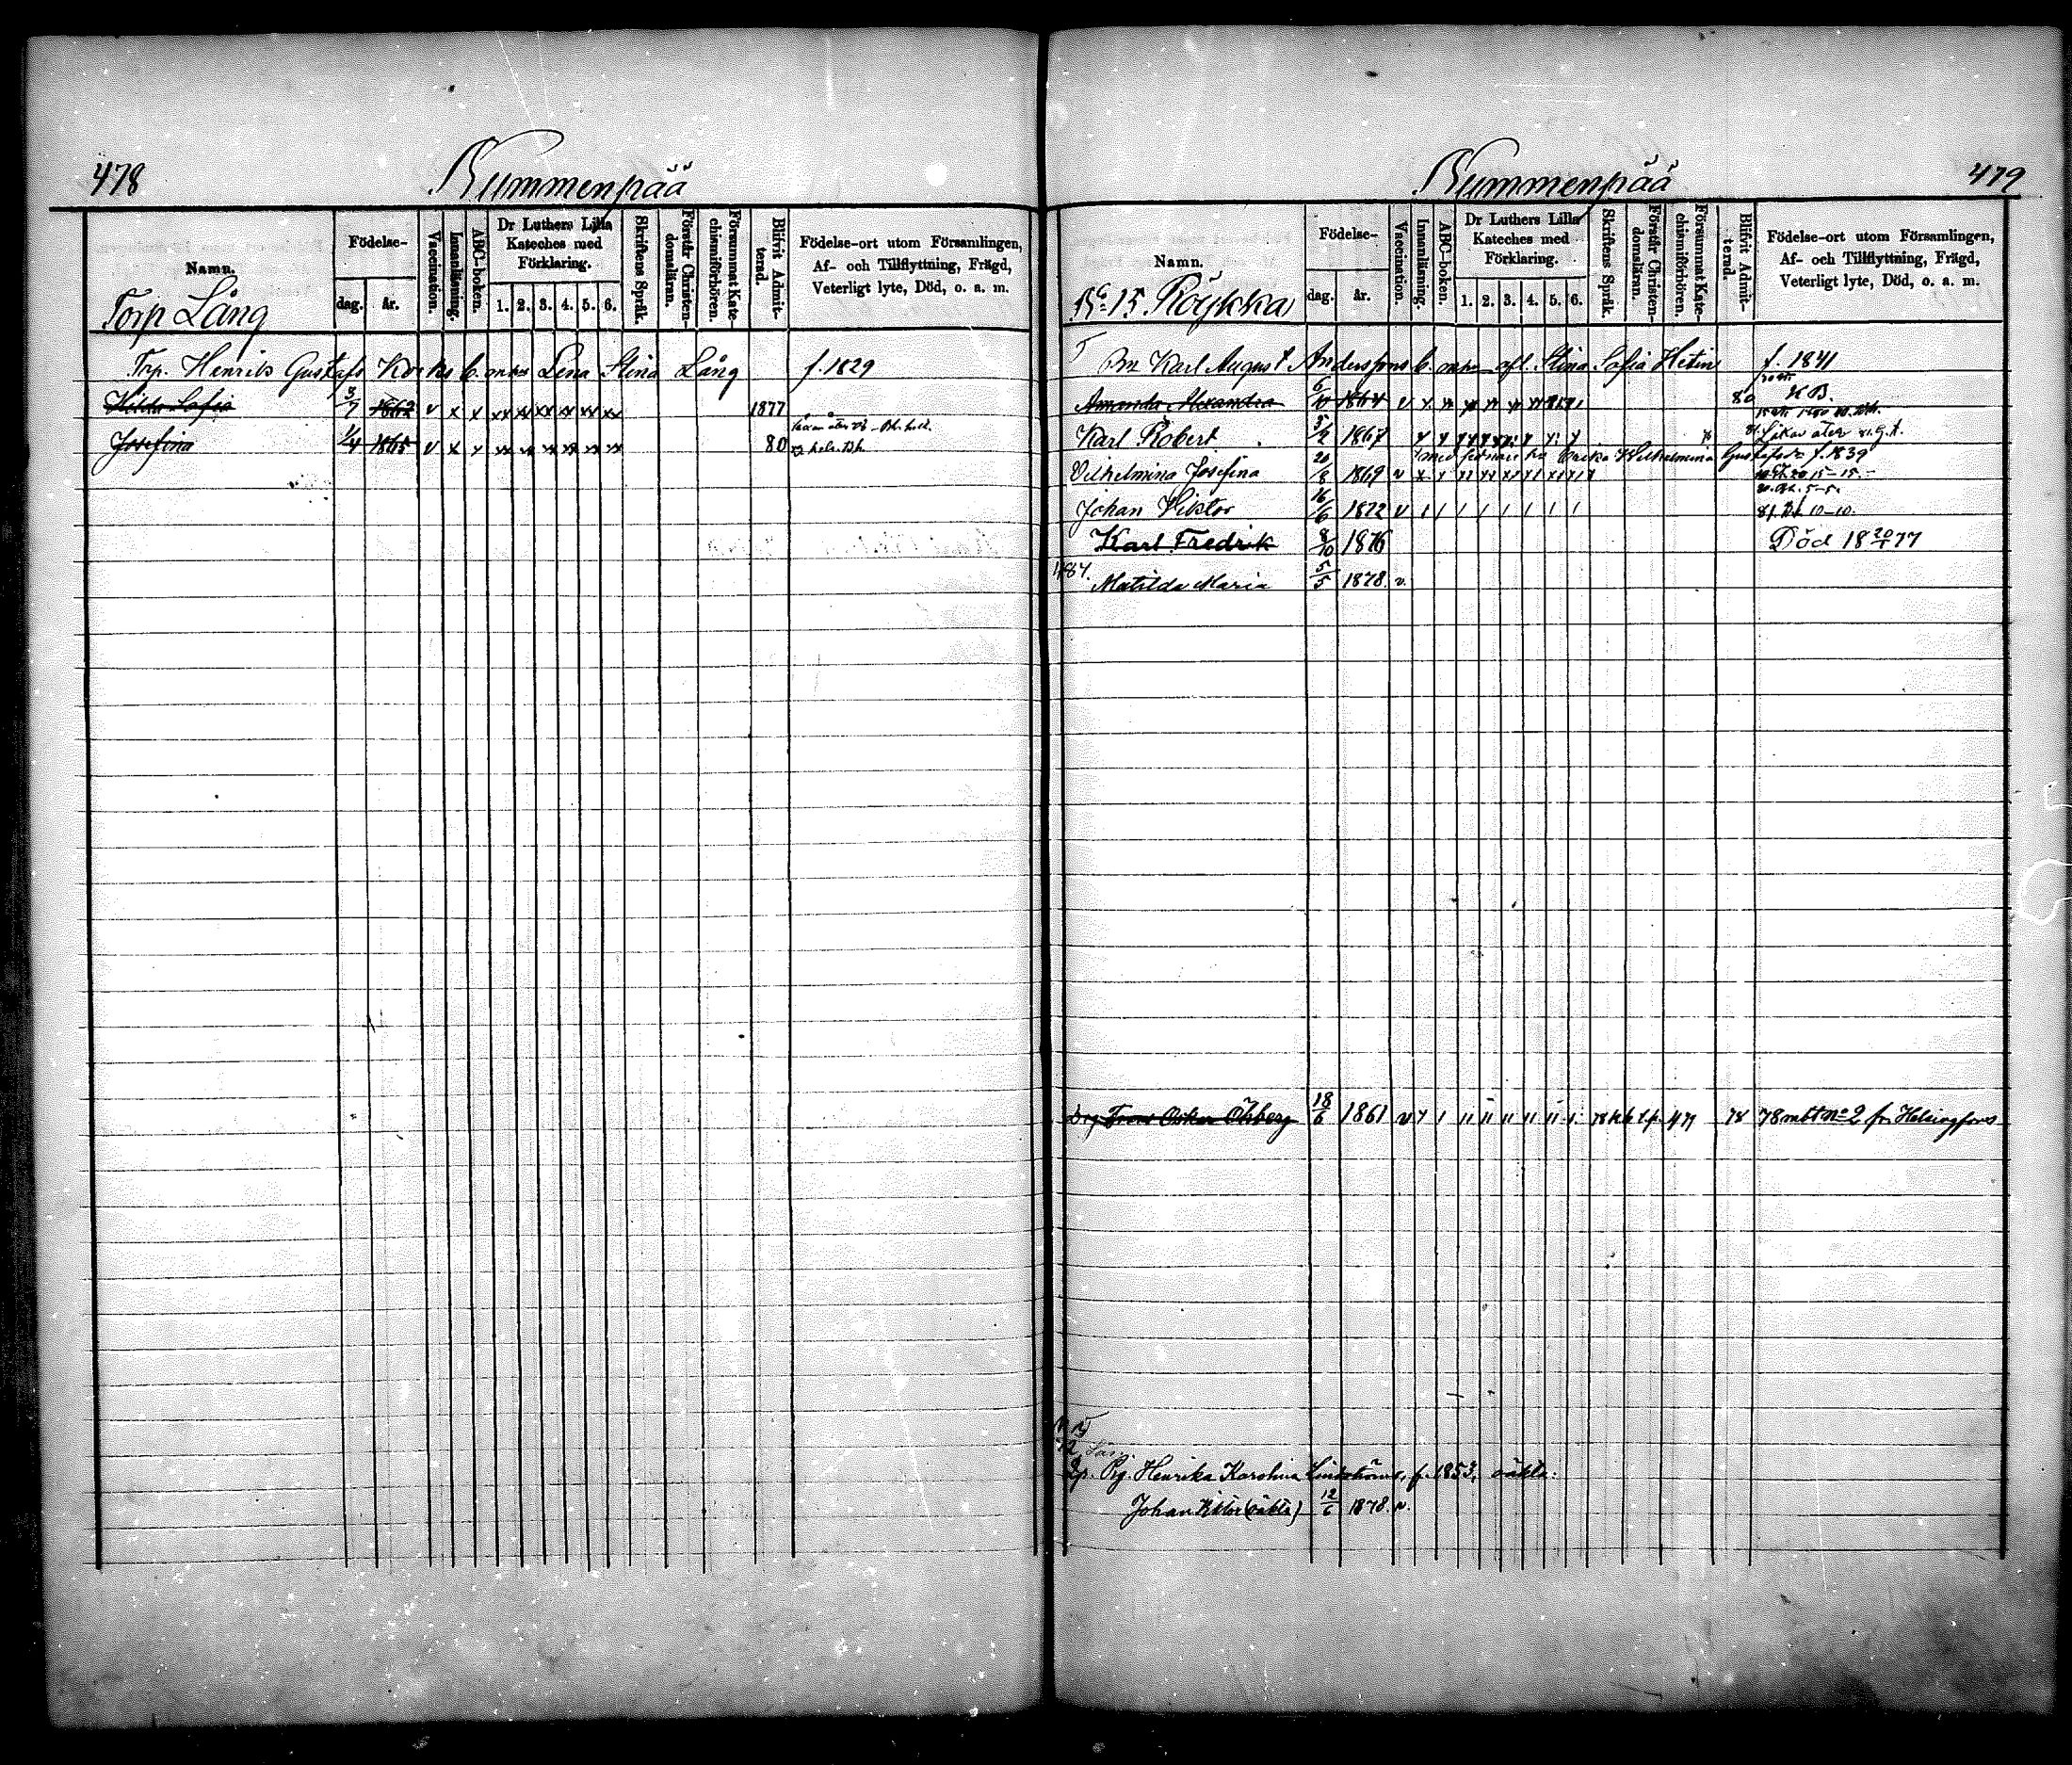 478
Nummenpää
Namn.
Födelse-
dag.
år.
Vaccination.
Innanläsning.
ABC-boken.
Dr Luthers Lilla
Kateches med
Förklaring.
1. 2. 3. 4. 5. 6.
Skriftens Språk.
Förstår Christen-
domsläran.
Försummat Kate-
chismiförhören.
Blifvit Admit-
terad.
Födelse-ort utom Församlingen,
Af- och Tillflyttning, Frägd,
Veterligt lyte, Död, o. a. m.
Torp Lång
Trp. Henriks Gustafs Lena Stina Lång f. 1829
Hilda Sofia 3/7 1862 v x x xx xx xx xx xx xx 1877
Josefina 1/4 1865 v x x xx xx xx xx xx xx 80
Nummenpää
479
Namn.
Födelse-
dag.
år.
Vaccination.
Innanläsning.
ABC-boken.
Dr Luthers Lilla
Kateches med
Förklaring.
1. 2. 3. 4. 5. 6.
Skriftens Språk.
Förstår Christen-
domsläran.
Försummat Kate-
chismiförhören.
Blifvit Admit-
terad.
Födelse-ort utom Församlingen,
Af- och Tillflyttning, Frägd,
Veterligt lyte, Död, o. a. m.
No 15 Röykkä
Karl August Anderssons afl. Stina Sofia f. 1841
Amanda Alexandra 6/10 1864 v 80
Karl Robert 5/2 1867
med Erika Vilhelmina Gustafsdr f. 1839
Vilhelmina Josefina 20/8 1869 v
Johan Viktor 16/6 1872 v
Karl Fredrik 8/10 1876 Död 18 20/1 77
484.
Matilda Maria 5/5 1878 v.
Drg Frans Oskar Öhberg 18/6 1861 v 78 78 mbt no 2 fr. Helsingfors
Pig. Henrika Karolina Lindström, f. 1853, oäkta:
Johan Viktor (oäkta) 12/6 1878. v.